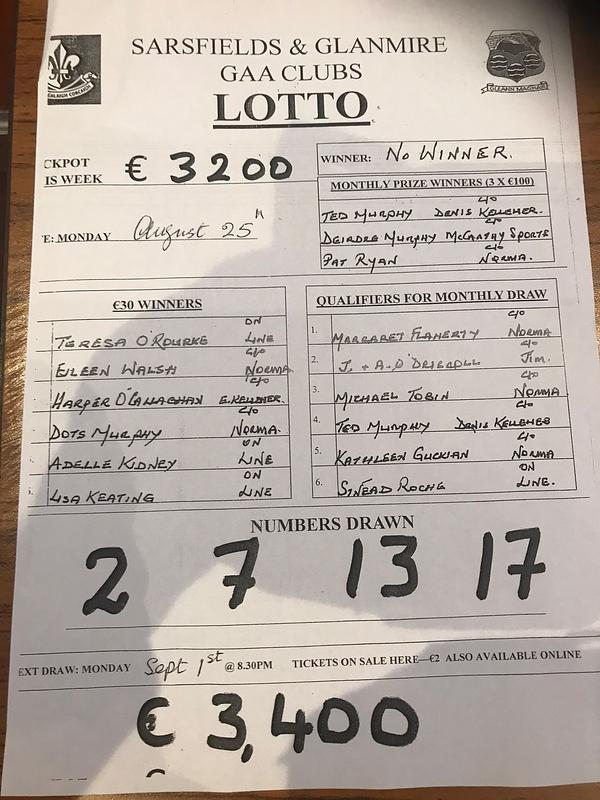 SARSFIELDS & GLANMIRE
GAA CLUBS
LOTTO
GLEANN MAGHAIR
CKPOT
IS WEEK € 3200
WINNER: NO WINNER.
MONTHLY PRIZE WINNERS (3 X €100)
TED MURPHY c/o DENIS KELLEHER.
DEIRDRE MURPHY c/o McCARTHY SPORTS
PAT RYAN c/o NORMA.
E: MONDAY August 25th
€30 WINNERS
TERESA O'ROURKE ON LINE
EILEEN WALSH c/o NORMA
HARPER O'CALLAGHAN c/o E. KELLEHER.
DOTS MURPHY c/o NORMA.
ADELLE KIDNEY ON LINE
LISA KEATING ON LINE
QUALIFIERS FOR MONTHLY DRAW
1. MARGARET FLAHERTY c/o NORMA
2. J. + A. O'DRISCOLL c/o JIM.
3. MICHAEL TOBIN c/o NORMA
4. TED MURPHY c/o DENIS KELLEHER
5. KATHLEEN GUCKIAN c/o NORMA
6. SINEAD ROCHE ON LINE.
NUMBERS DRAWN
2 7 13 17
EXT DRAW: MONDAY Sept 1st @ 8.30PM TICKETS ON SALE HERE—€2 ALSO AVAILABLE ONLINE
€ 3,400